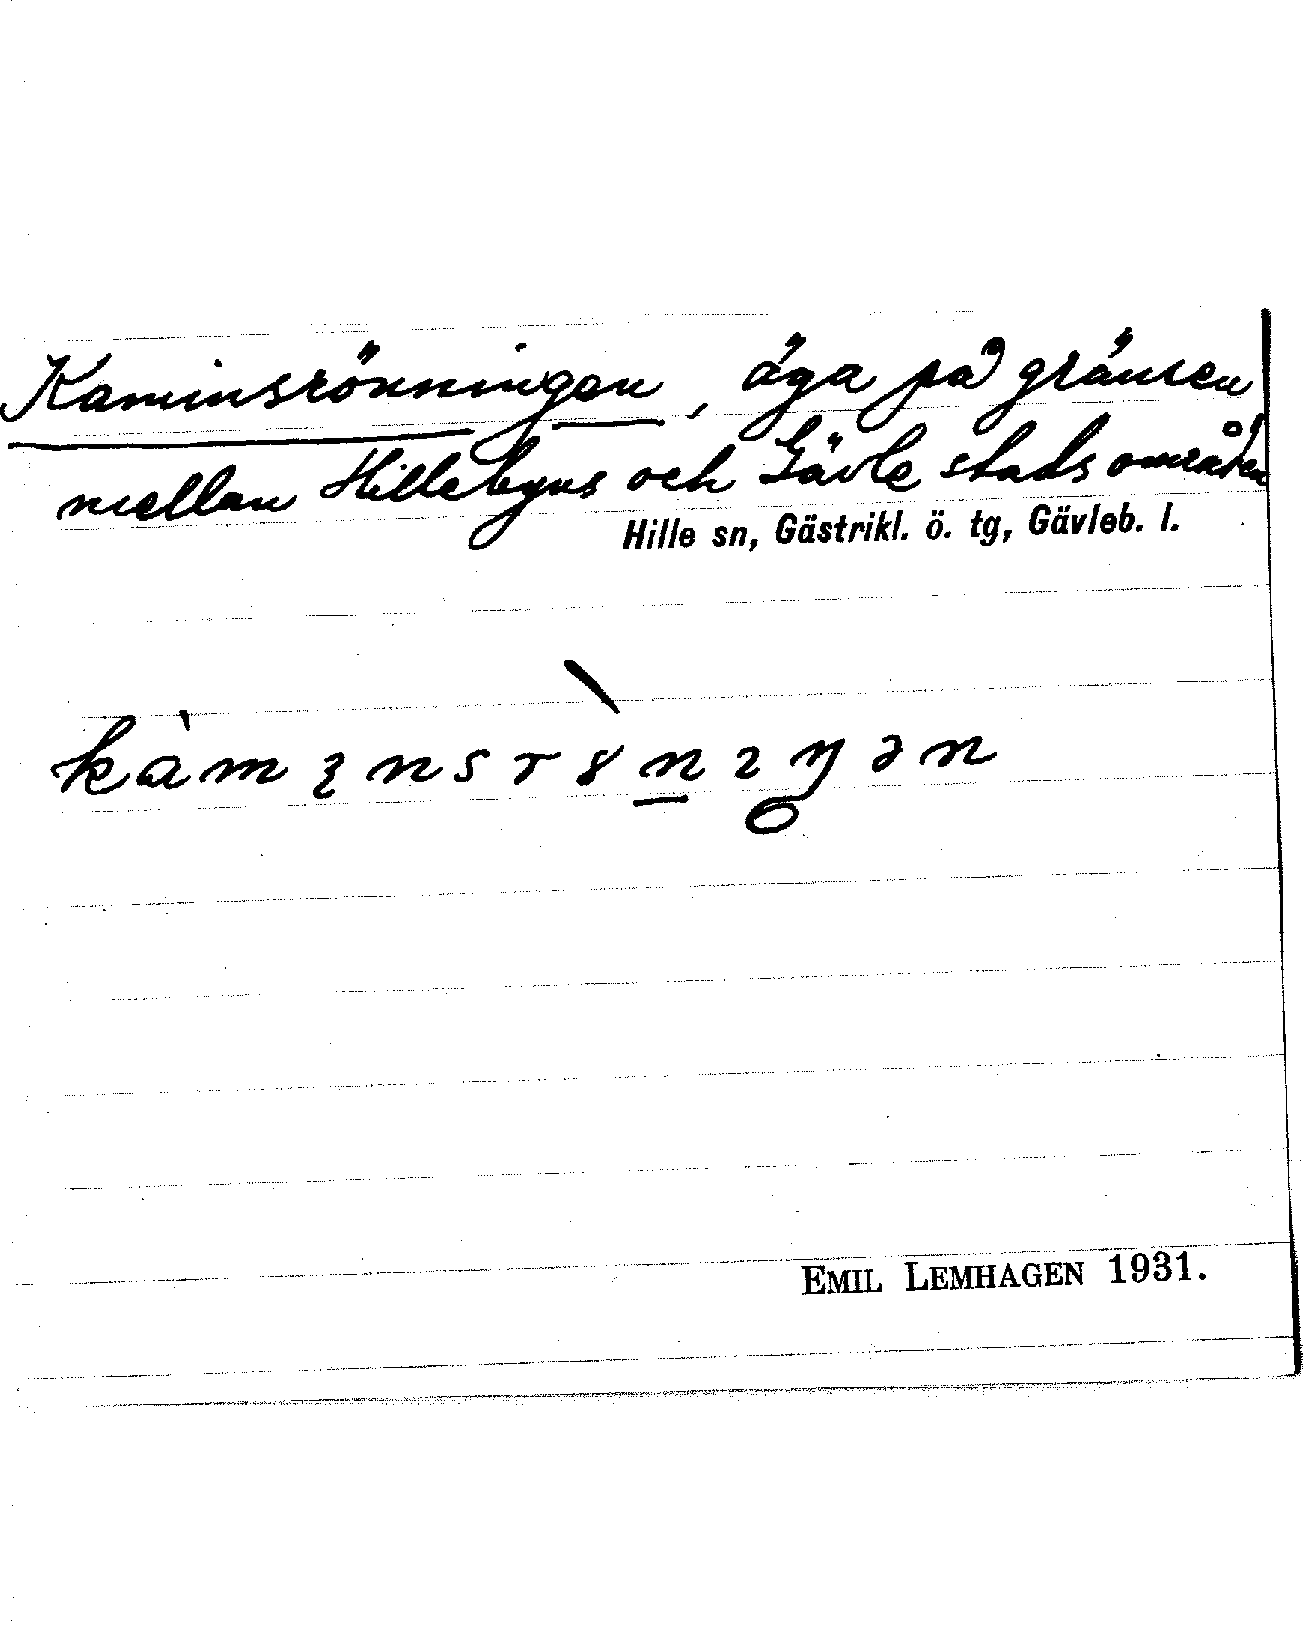 Kaminsrönningen, äga på gränsen
mellan Hillebyns och Gävle stads områden
Hille sn, Gästrikl. ö. tg, Gävleb. l.
kàmınsrөnıŋən
EMIL LEMHAGEN 1931.